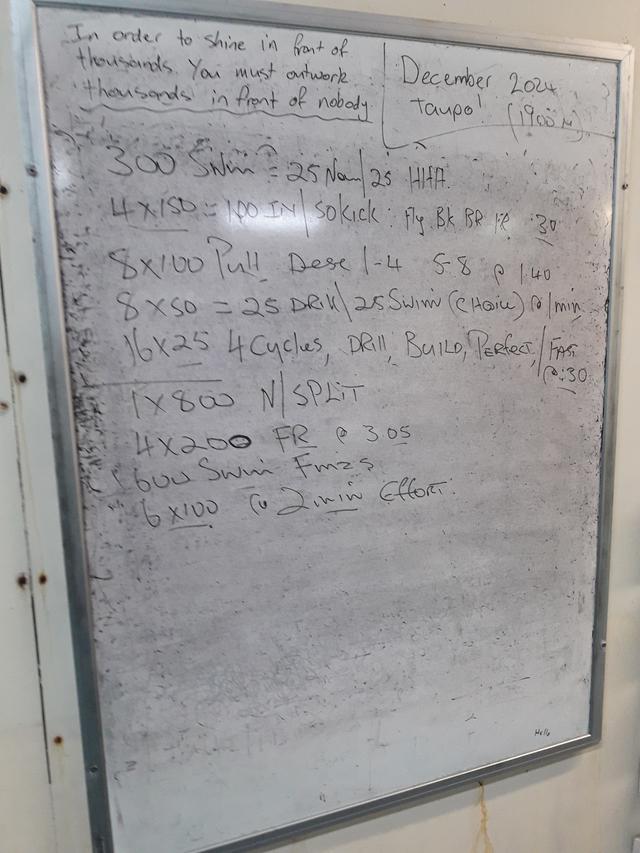 In order to shine in front of
thousands. You must outwork
thousands in front of nobody
December 2024
Taupo
(1900 M)
300 Swim = 25 Nam/25 HHA.
4x150 = 100 IN/50 KICK: Fly Bk BR FR :30
8x100 Pull Desc 1-4 5-8 @ 1.40
8x50 = 25 DRILL/25 Swim (CHOICE) @ 1min
16x25 4 Cycles, DRILL, BUILD, PERFECT/FAST
@:30
1x800 N/SPLIT
4x200 FR @ 3.05
600 Swim
6x100 @ 2min EFFORT.
Hello